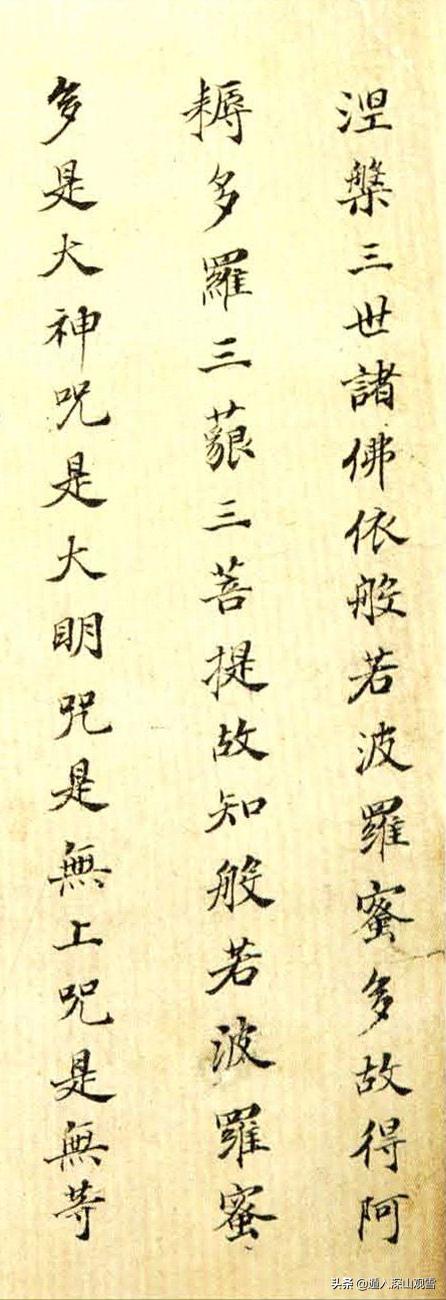 涅槃三世諸佛依般若波羅蜜多故得阿
耨多羅三藐三菩提故知般若波羅蜜
多是大神咒是大明咒是無上咒是無等
头条 @道人深山观雪